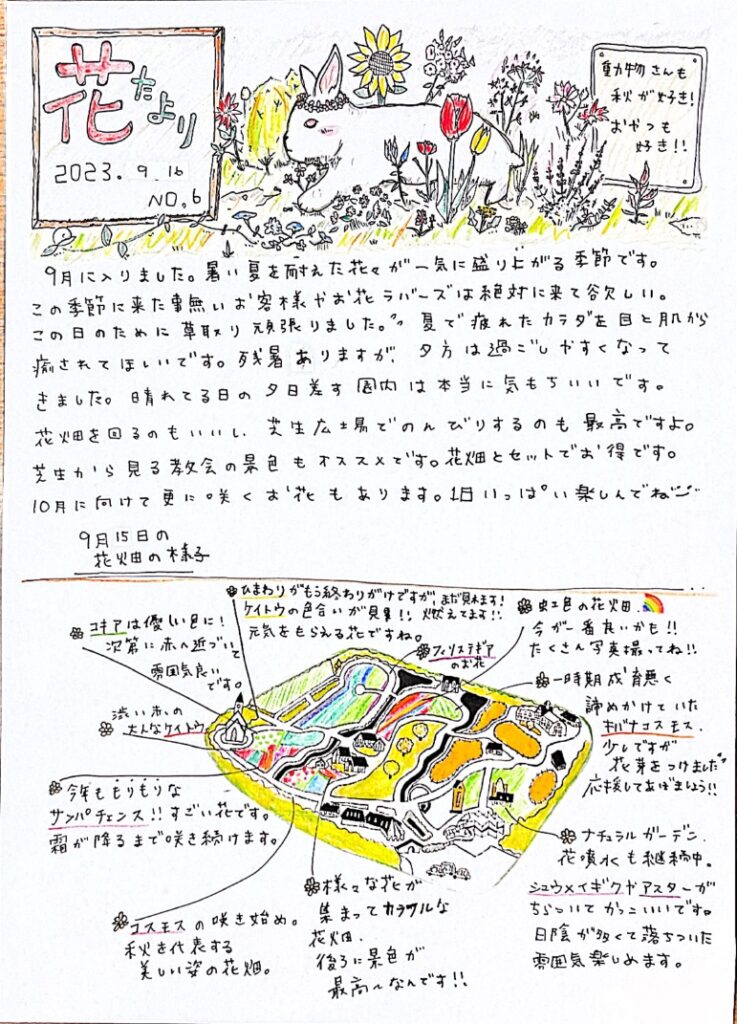 花だより
2023.9.16
NO.6
動物さんも
秋が好き!
おやつも
好き!!
9月に入りました。暑い夏を耐えた花々が一気に盛り上がる季節です。
この季節に来た事無いお客様やお花ラバーズは絶対に来て欲しい。
この日のために草取り頑張りました。夏で疲れたカラダを目と肌から
癒されてほしいです。残暑ありますが、夕方は過ごしやすくなって
きました。晴れてる日の夕日差す園内は本当に気もちいいです。
花畑を回るのもいいし、芝生広場でのんびりするのも最高ですよ。
芝生から見る教会の景色もオススメです。花畑とセットでお得です。
10月に向けて更に咲くお花もあります。1日いっぱい楽しんでね
9月15日の
花畑の様子
ひまわりがもう終わりがけですが、まだ見れます!
ケイトウの色合いが見事!!燃えてます!!
元気をもらえる花ですね。
コキアは優しい色に!
次第に赤へ近づいて
雰囲気良い
です。
フィリステギア
のお花
虹色の花畑、
今が一番良いかも!!
たくさん写真撮ってね!!
一時期成育悪く
諦めかけていた
キバナコスモス、
少しですが
花芽をつけました
応援してあげましょう!!
渋い赤の
大人なケイトウ
今年ももりもりな
サンパチェンス!!すごい花です。
霜が降るまで咲き続けます。
コスモスの咲き始め。
秋を代表する
美しい姿の花畑。
様々な花が
集まってカラフルな
花畑、
後ろに景色が
最高〜なんです!!
ナチュラルガーデン、
花噴水も継続中。
シュウメイギクやアスターが
ちらついてかっこいいです。
日陰が多くて落ちついた
雰囲気楽しめます。